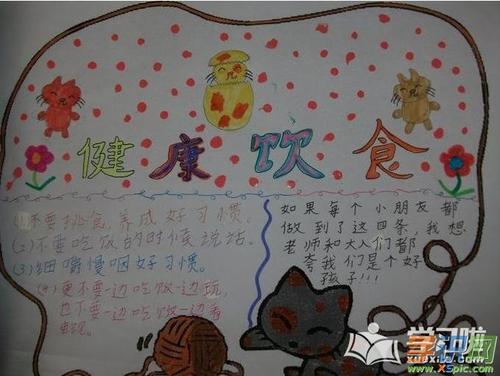 健康饮食
(1)不要挑食,养成好习惯。
(2)不要吃饭的时侯说话。
(3)细嚼慢咽好习惯。
(4)更不要一边吃饭一边玩,
也不要一边吃饭一边看
电视。
如果每个小朋友都
做到了这四条,我想
老师和大人们都
夸我们是个好
孩子!!!
学习啦
www.xspic.com